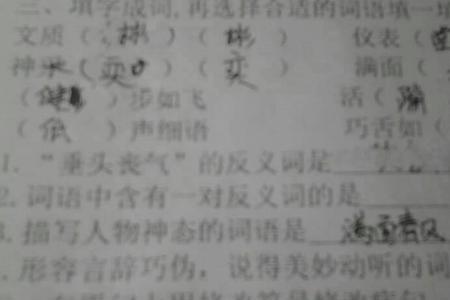 三、填字成词,再选择合适的词语填一填
文质（彬）（彬） 仪表（
神采（奕）（奕） 满面（
（健）步如飞 活（
（低）声细语 巧舌如（
1. “垂头丧气”的反义词是
2. 词语中含有一对反义词的是
3. 描写人物神态的词语是 满面春风
. 形容言辞巧伪，说得美妙动听的词